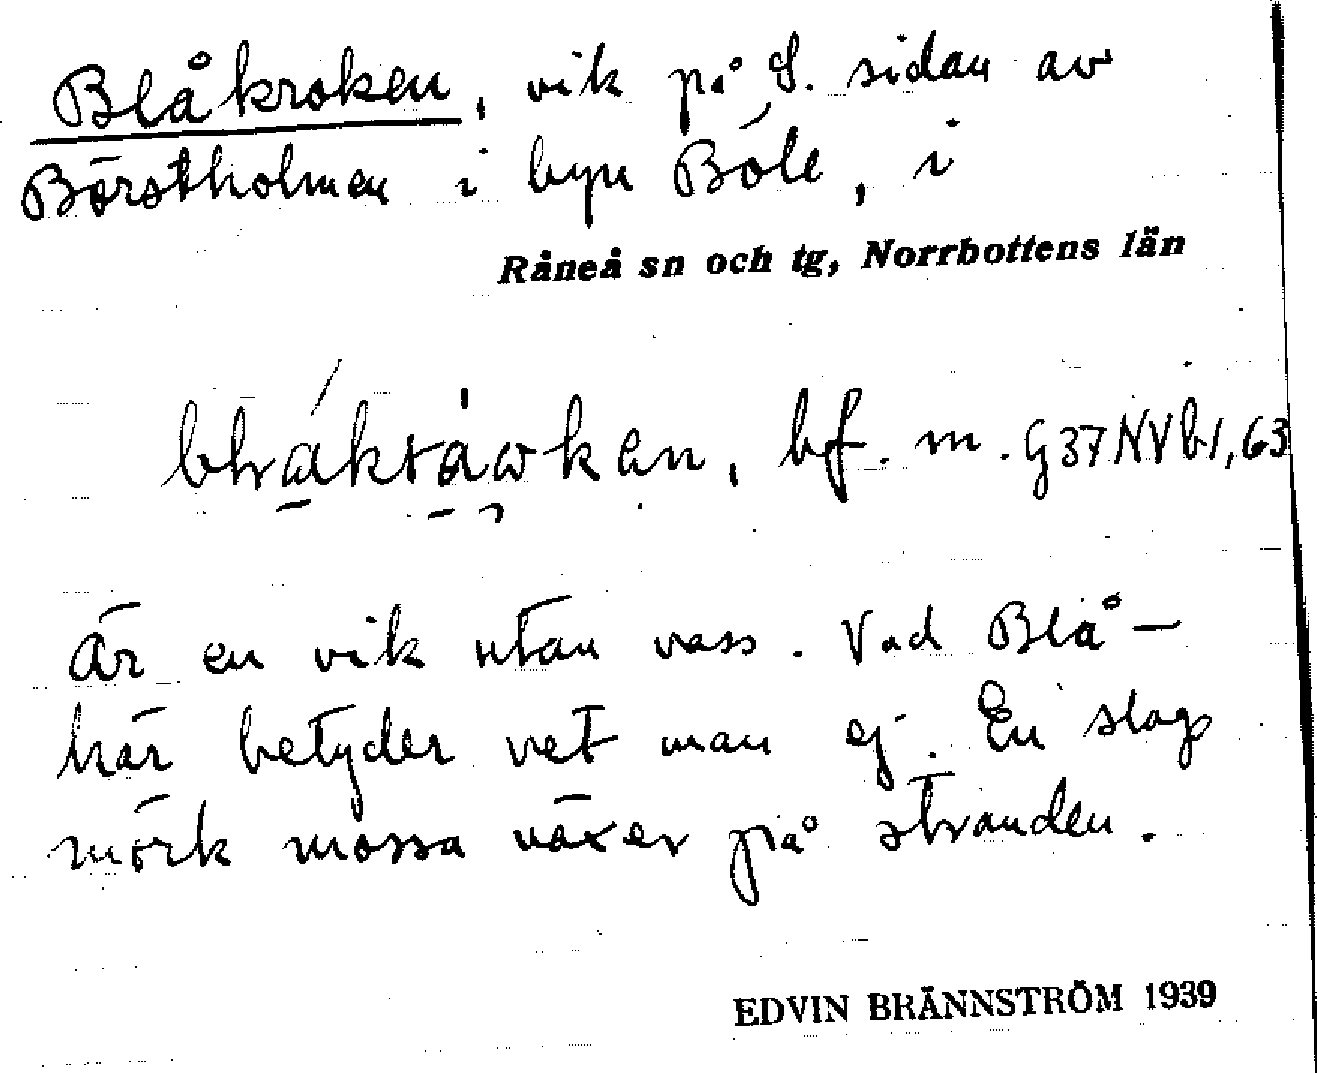 Blåkroken, vik på S. sidan av
Börstholmen i byn Böle, i
Råneå sn och tg, Norrbottens län
bf. m.
är en vik utan vass. Vad Blå-
här betyder vet man ej. En slags
mörk mossa växer på stranden.
EDVIN BRÄNNSTRÖM 1939